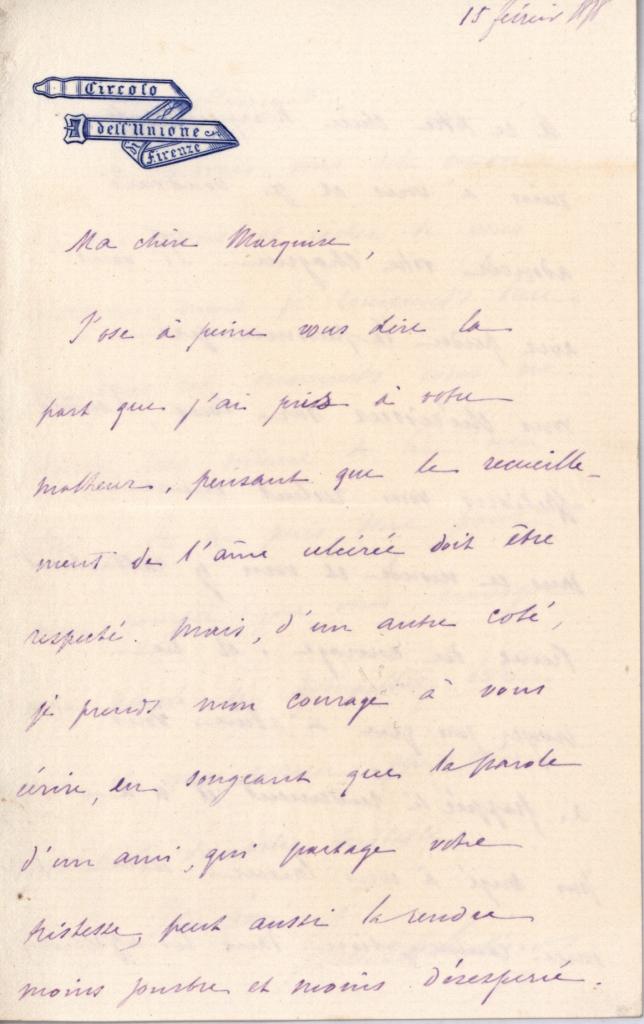 15 février
Circolo
dell'Unione
Firenze
Ma chère Marquise,
J'ose à peine vous dire la
part que j'ai pris à votre
malheur, pensant que le recueille-
ment de l'âme ulcérée doit être
respecté. Mais, d'un autre coté,
je prends mon courage à vous
écrire, en songeant que la parole
d'un ami, qui partage votre
tristesse, peut aussi la rendre
moins sombre et moins désespérée.